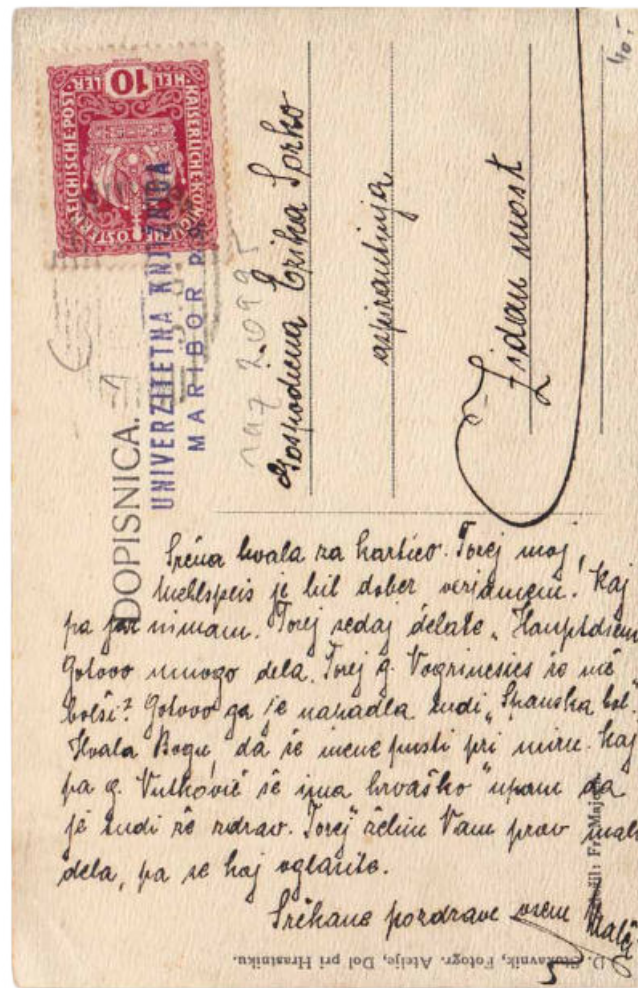 40.-
KAISERLICHE KÖNIGLICHE ÖSTERREICHISCHE POST
HELLER
10
DOPISNICA.
UNIVERZITETNA KNJIŽNICA
MARIBOR
Gospodična Erika Sorko
aspirantinja
Zidan most
Srčna hvala za kartico. Torej moj
Mehlspeis je bil dober verjamem. Kaj
pa jaz nimam. Torej sedaj delate „Hauptdienst
Gotovo mnogo dela. Torej g. Vogrinesics
bolši? Gotovo ga je napadla tudi „Španska bol."
Hvala Bogu, da še mene pusti pri miru. Kaj
pa g. Vutković še ima hrvaško" upam da
je tudi že zdrav. Torej želim Vam prav malo
dela, pa se kaj oglasite.
Srčkane pozdrave vsem
D. Stokavnik, Fotogr. Atelje, Dol pri Hrastniku.